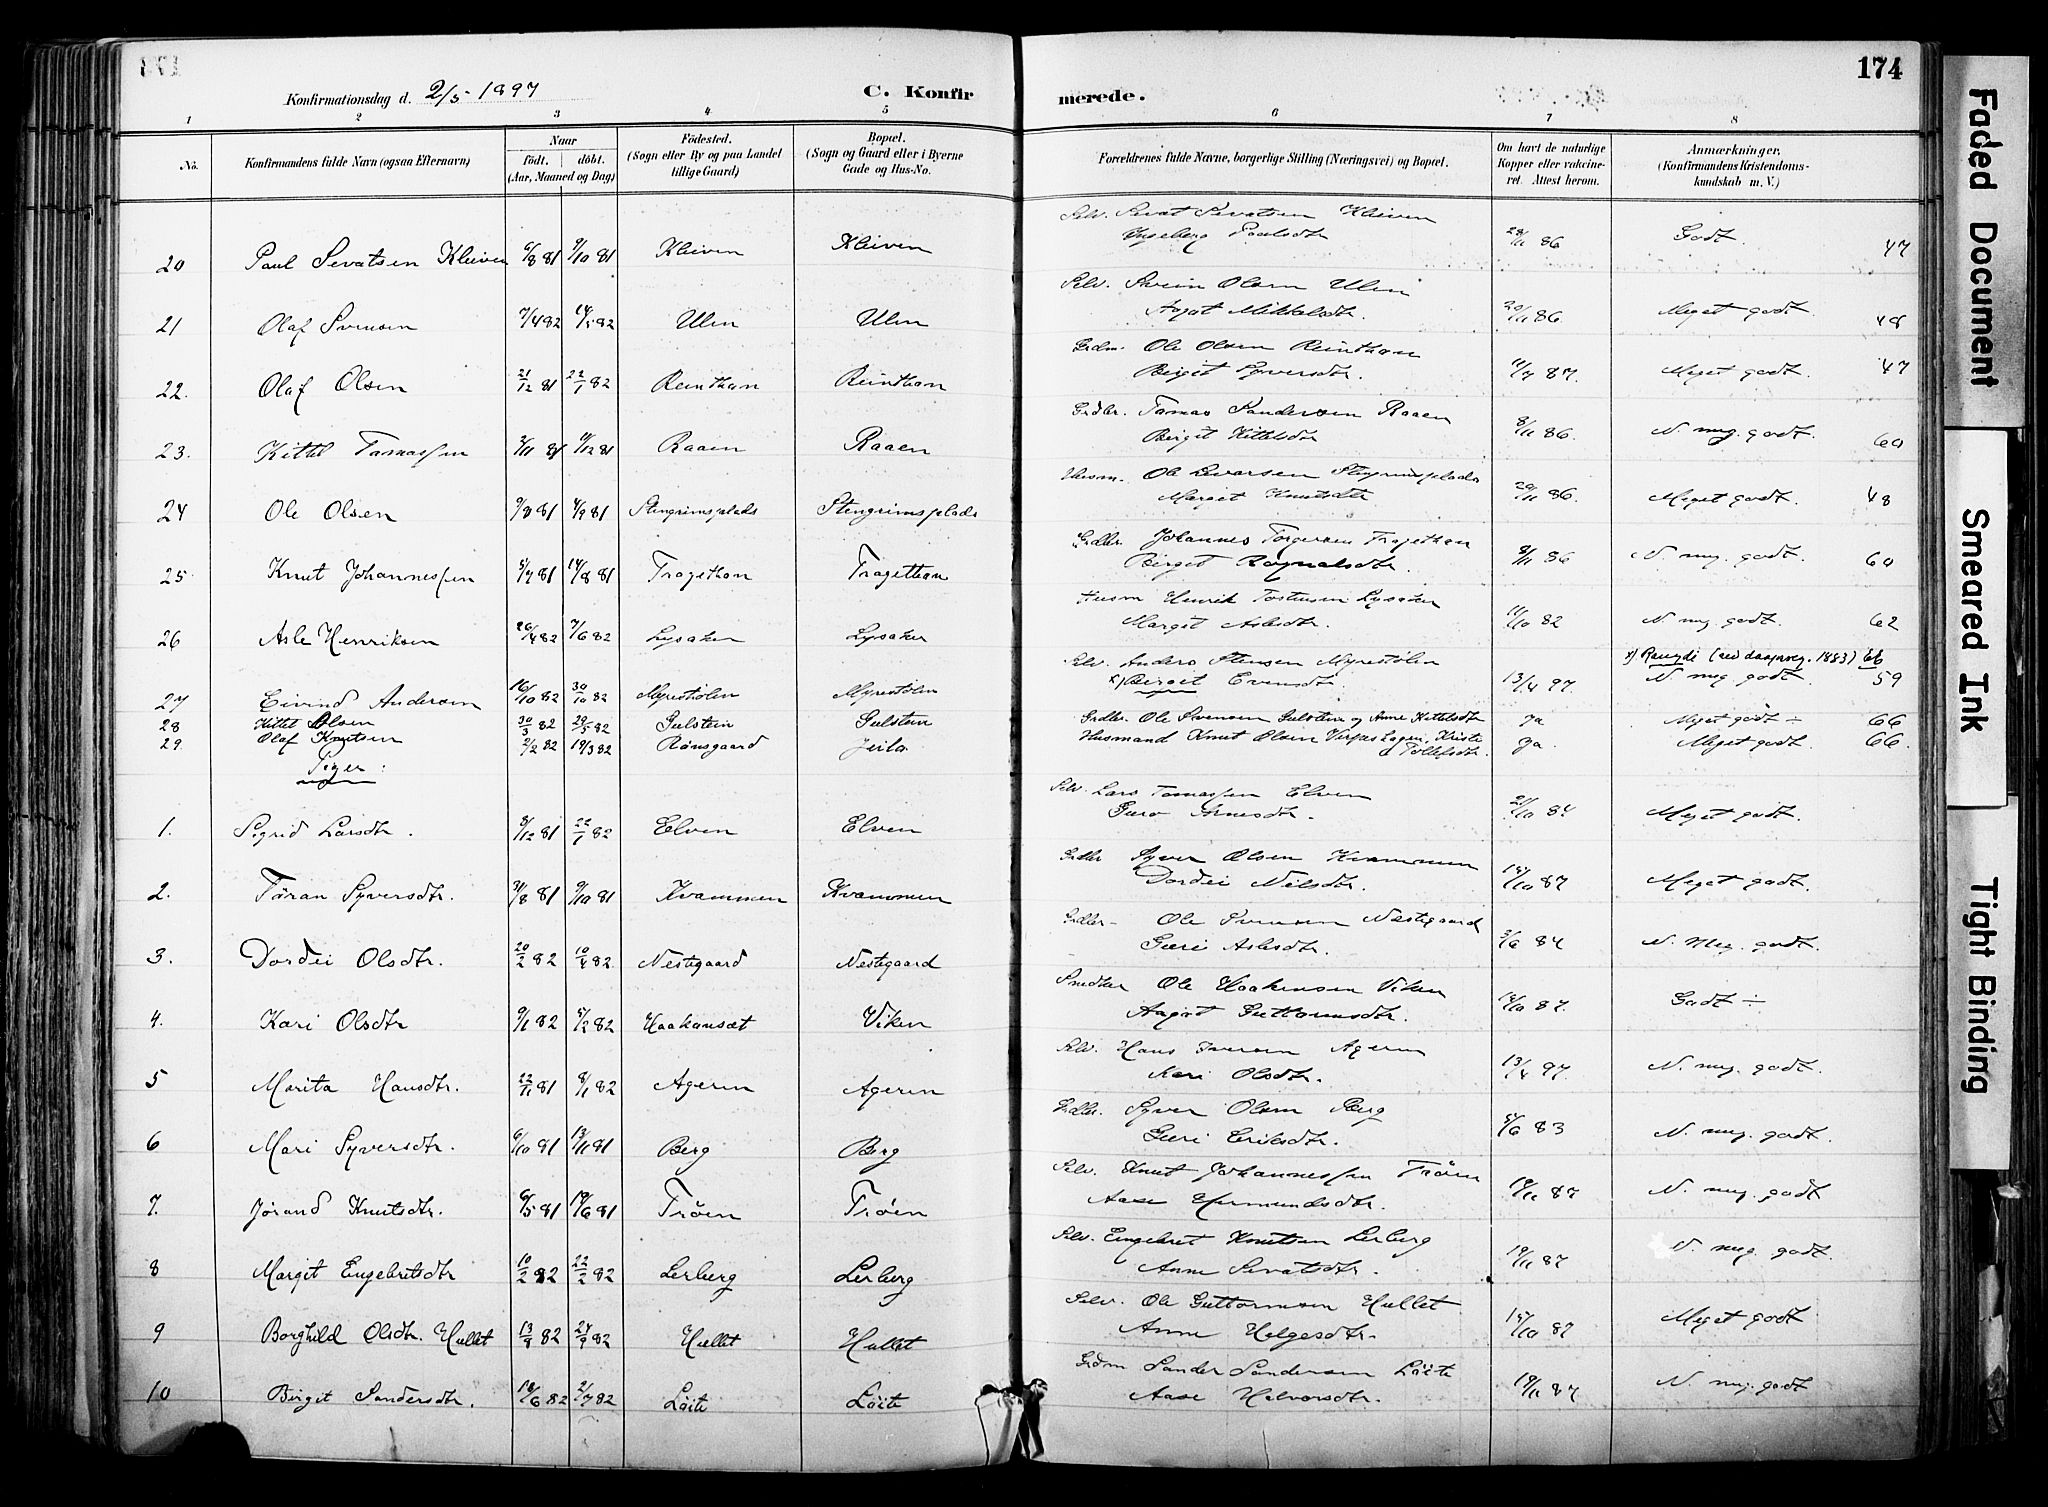 174
Konfirmationsdag d. 2/5 1897
C. Konfirmerede.
1 2 3 4 5 6 7 8
No.
Konfirmandens fulde Navn (ogsaa Efternavn)
Naar
födt. döbt.
(Aar, Maaned og Dag)
Födested.
(Sogn eller By og paa Landet
tillige Gaard)
Bopæl.
(Sogn og Gaard eller i Byerne
Gade og Hus-No.
Forældrenes fulde Navne, borgerlige Stilling (Næringsvei) og Bopæl.
Om havt de naturlige
Kopper eller vakcine-
ret. Attest herom.
Anmærkninger,
(Konfirmandens Kristendoms-
kundskab m. V.)
Selv. Sevat Sevatsen Kleiven
20 Paul Sevatsen Kleiven 6/8 81 9/10 81 Kleiven Kleiven Ingeborg Paulsdtr 28/11 86 Godt. 47
Selv. Svein Olsen Ulin
21 Olaf Svensen 7/4 82 14/5 82 Ulin Ulin Aagot Mikkelsdtr. 20/11 86. Meget godt. 48
Grdm. Ole Olsen Reinthon
22. Olaf Olsen 21/12 81 22/1 82 Reinthon Reinthon Birgit Syversdtr. 11/7 87. Meget godt. 47
Grdbr. Tomas Sandersen Raaen
23. Kittil Tomassen 2/11 81 11/12 81 Raaen Raaen Birgit Kittelsdtr 8/11 86. N. meg. godt. 60
Husm. Ole Evarsen Stengrimsplads
24 Ole Olsen 9/8 81 4/9 81 Stengrimsplads Stengrimsplads Margit Knutsdtr 20/11 86. Meget godt. 48
Grdbr. Johannes Torgersen Tragethon
25 Knut Johannessen 5/7 81 14/8 81 Tragethon Tragethon Birgit Rognaldsdtr. 8/11 86 N. meg. godt. 60
Husm Henrik Tostensen Lysaker
26 Asle Henriksen 26/4 82 7/6 82 Lysaker Lysaker Margit Aslesdtr. 11/10 82 N. meg. godt. 62
Selv. Anders Stensen Myrestølin x) Rangdi (ved daapsreg. 1883) 66
27 Eivind Andersen 16/10 82 30/10 82 Myrestølin Myrestølin x) Birgit Evensdtr 13/4 97. N. meg godt. 59
28 Kittel Olsen 30/3 82 29/5 82 Gulstein Gulstein Grdbr. Ole Svensen Gulstein og Anne Kittelsdtr ja Meget godt ÷ 66
29. Olaf Knutsen 2/2 82 19/3 82 Rønsgaard Jeilo Husmand Knut Olsen Verpeshagen, Kristi Tollefsdtr. ja. Meget godt. 66.
Piger:
Selv. Lars Tomassen Elven
1. Sigrid Larsdtr. 8/12 81 22/1 82 Elven Elven Guro Arnesdtr. 21/10 84 Meget godt.
Grdbr Syver Olsen Kvammen
2. Tøran Syversdtr. 31/8 81 9/10 81 Kvammen Kvammen Dordei Nilsdtr. 15/10 87 Meget godt.
Grdbr- Ole Svensen Nestegaard
3. Dordei Olsdtr. 20/2 82 10/4 82 Nestegaard Nestegaard Guri Aslesdtr. 3/6 84 N. Meg. godt.
Ole Haakensen Viken
4. Kari Olsdtr 9/1 82 5/2 82 Haakansæt Viken Aagot Guttormsdtr. 12/10 87. Godt ÷
Selv. Hans Iversen Agerin
5 Marita Hansdtr. 22/11 81 8/1 82 Agerin Agerin Kari Olsdtr. 13/4 97. N. meg. godt.
Grdbr. Syver Olsen Berg
6 Mari Syversdtr. 6/10 81 13/11 81 Berg Berg Guri Eriksdtr. 5/6 83 N. meg. godt.
Selv. Knut Johannessen Trøen
7. Jørand Knutsdtr. 6/5 81 19/6 81 Trøen Trøen Aase Hermundsdtr. 19/11 87 N. meg. godt
Selv. Engebret Knutsen Lerberg
8 Margit Engebretsdtr 10/2 82 22/2 82 Lerberg Lerberg Anne Sevatsdtr. 19/11 87 N. meg. godt.
Selv. Ole Guttormsen Hullet
9 Borghild Olsdtr. Hullet 13/8 82 24/9 82 Hullet Hullet Anne Helgesdtr. 15/10 87 Meget godt
Grdm Sander Sandersen Löite
10 Birgit Sandersdtr. 18/6 82 2/7 82 Löite Löite Aase Halvorsdtr. 19/11 87 N. meg. godt
Faded Document
Smeared Ink
Tight Binding